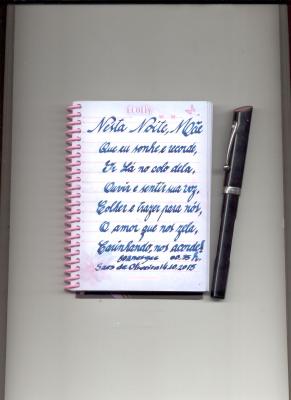 Nesta Noite, Mãe
Que eu sonhe e recorde,
Ir lá no colo dela,
Ouvir e sentir sua voz,
Colher e trazer para nós,
O amor que nos zela,
Carinhando, nos acorde!
de Oliveira 14.10.2015